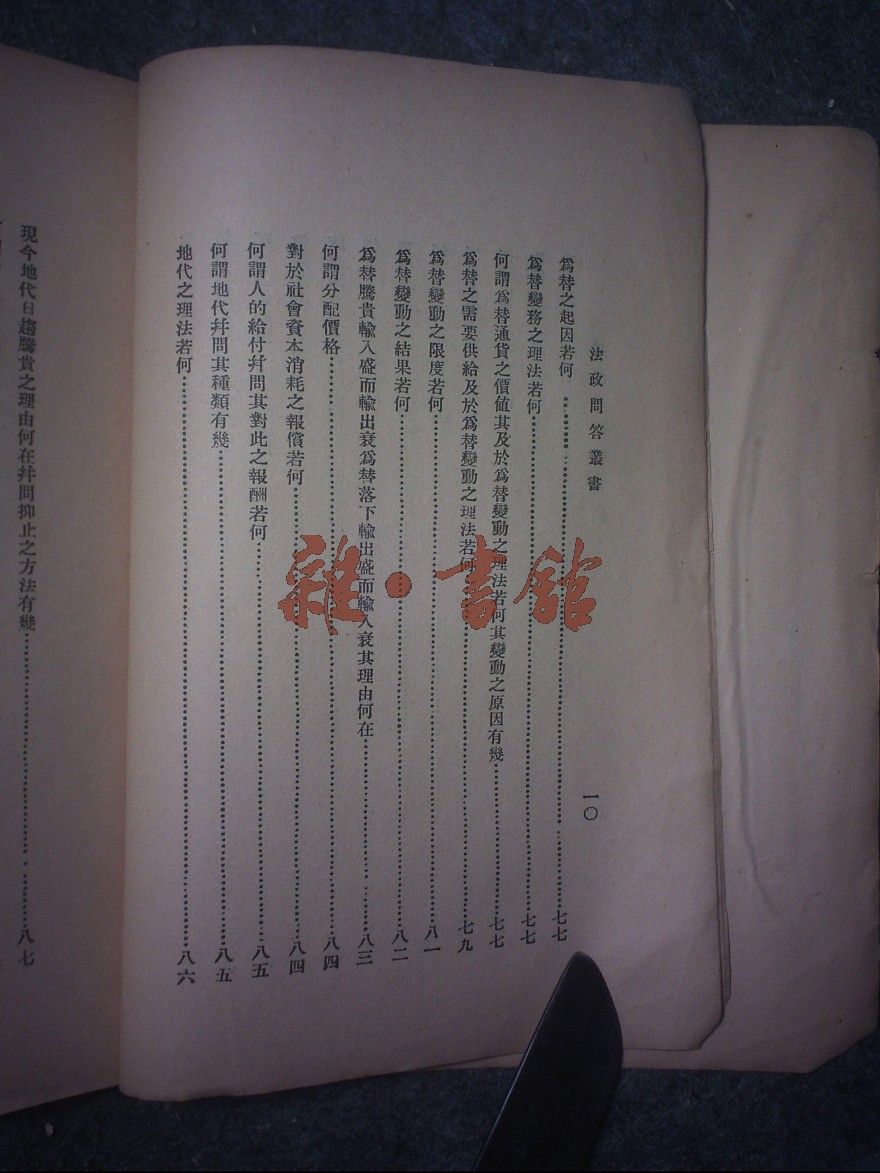 法政問答叢書
一〇
爲替之起因若何……七七
爲替變務之理法若何……七七
何謂爲替通貨之價値其及於爲替變動之理法若何其變動之原因有幾……七七
爲替之需要供給及於爲替變動之理法若何……七九
爲替變動之限度若何……八一
爲替變動之結果若何……八二
爲替騰貴輸入盛而輸出衰爲替落下輸出盛而輸入衰其理由何在……八三
何謂分配價格……八四
對於社會資本消耗之報償若何……八四
何謂人的給付幷問其對此之報酬若何……八五
何謂地代幷問其種類有幾……八五
地代之理法若何……八六
現今地代日趨騰貴之理由何在幷問抑止之方法有幾……八七
雜·書館